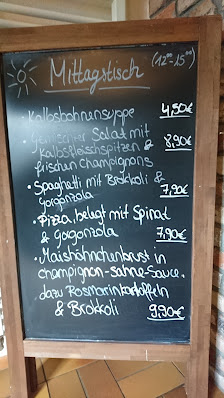 Mittagstisch (12⁰⁰-15⁰⁰)
• Kalbsbohnensuppe 4,50€
• Gemischter Salat mit
Kalbsfleischspitzen & 8,90€
frischen Champignons
• Spaghetti mit Brokkoli &
Gorgonzola 7,90€
• Pizza, belegt mit Spinat
& Gorgonzola 7,90€
• Maishähnchenbrust in
Champignon-Sahne-Sauce,
dazu Rosmarinkartoffeln
& Brokkoli 9,90€